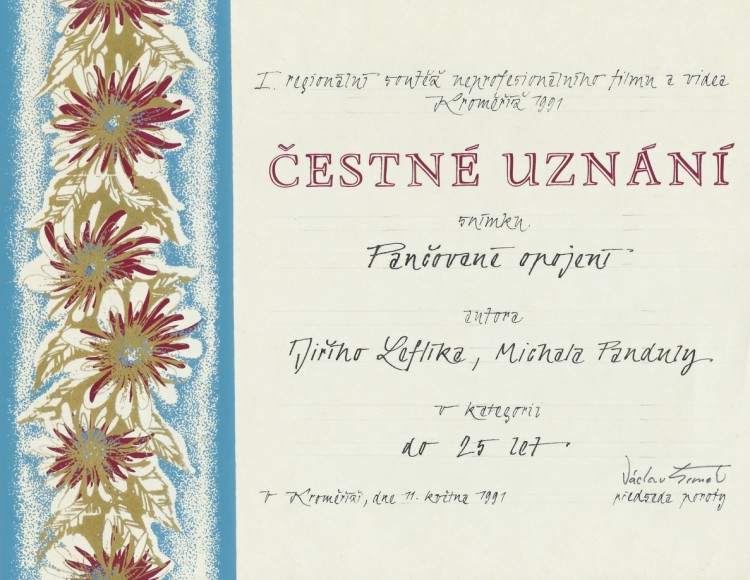 I. regionální soutěž neprofesionálního filmu a videa
Kroměříž 1991
ČESTNÉ UZNÁNÍ
snímku
Pančované opojení
autora
Jiřího Leflíka, Michala Panduly
v kategorii
do 25 let
v Kroměříži, dne 11. května 1991
Václav
předseda poroty